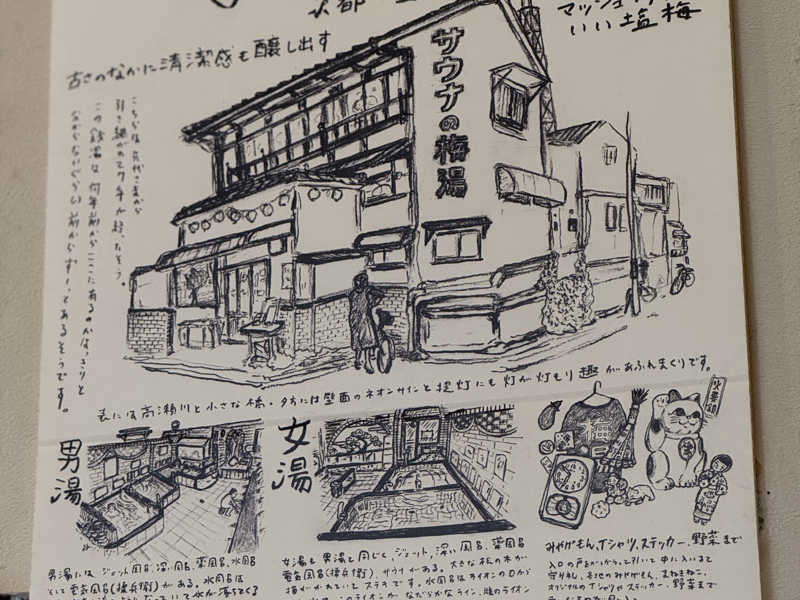 京都
いい塩梅
古さのなかに清潔感も醸し出す
サウナの梅湯
こちらは先代さまから
引き継がれて
この銭湯は何年前からここにあるのかはっきりと
わからないぐらい前からずーっとあるそうです。
表には高瀬川と小さな橋・夕方には壁面のネオンサインと提灯にも灯が灯もり趣があふれまくりです。
男湯
女湯
みやげもん、Tシャツ、ステッカー、野菜まで
男湯には、ジェット風呂、深い風呂、薬風呂、水風呂
そして電気風呂(揉兵衛)がある。水風呂は
女湯も男湯と同じく、ジェット、深い風呂、薬風呂
電気風呂(揉兵衛)、サウナがある。大きな松の木が
描かれていてステキです。水風呂はライオンの口から
入口の戸をがらがらっと引いて中に入ると
オリジナルのTシャツやステッカー、野菜まで